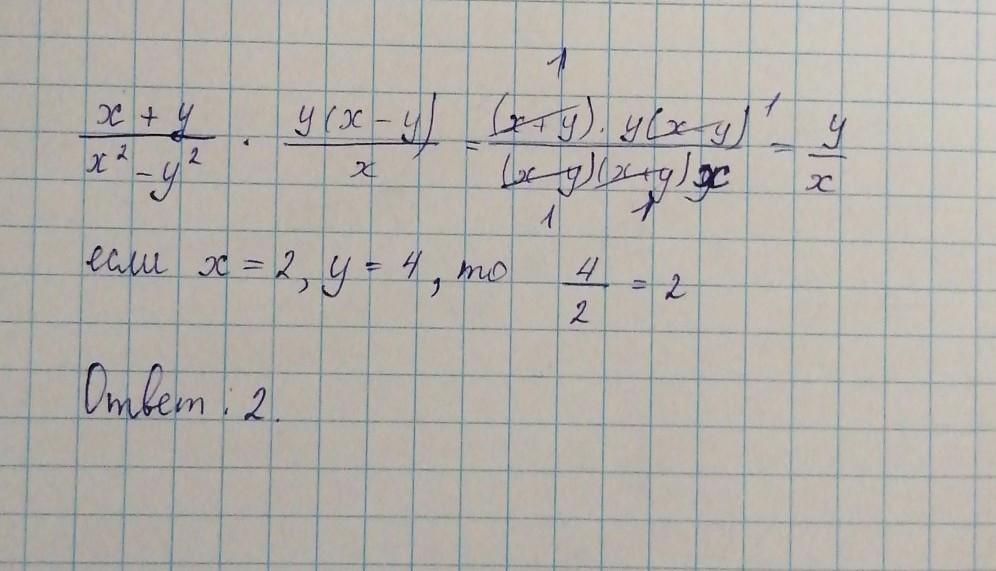 1
(x + y)/(x² - y²) · y(x - y)/x = (x+y) · y(x-y)/(x-y)(x+y)x = y/x
1 1 1
если x = 2, y = 4, то 4/2 = 2
Ответ: 2.